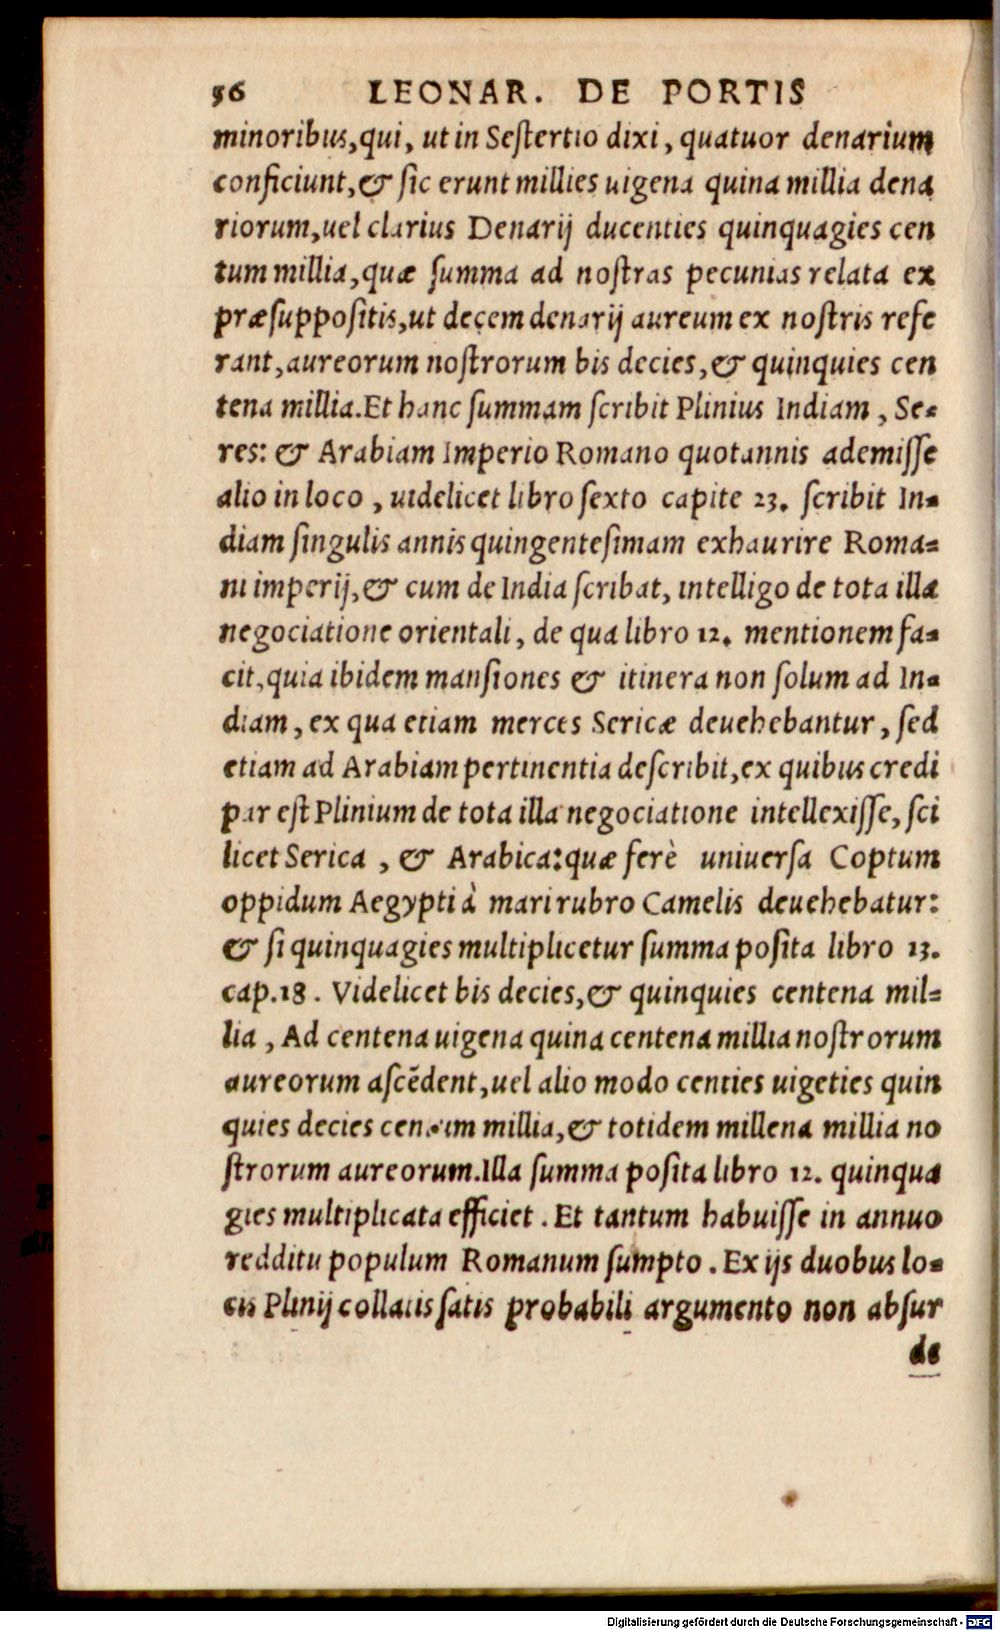 56 LEONAR. DE PORTIS
minoribus, qui, ut in Seſtertio dixi, quatuor denarium
conficiunt, & ſic erunt millies uigena quina millia dena
riorum, uel clarius Denarij ducenties quinquagies cen
tum millia, quæ ſumma ad noſtras pecunias relata ex
præſuppoſitis, ut decem denarij aureum ex noſtris refe
rant, aureorum noſtrorum bis decies, & quinquies cen
tena millia. Et hanc ſummam ſcribit Plinius Indiam, Se-
res: & Arabiam Imperio Romano quotannis ademiſſe
alio in loco, uidelicet libro ſexto capite 23. ſcribit In-
diam ſingulis annis quingenteſimam exhaurire Roma-
ni imperij, & cum de India ſcribat, intelligo de tota illa
negociatione orientali, de qua libro 12. mentionem fa-
cit, quia ibidem manſiones & itinera non ſolum ad In-
diam, ex qua etiam merces Sericæ deuehebantur, ſed
etiam ad Arabiam pertinentia deſcribit, ex quibus credi
par eſt Plinium de tota illa negociatione intellexiſſe, ſci
licet Serica, & Arabica: quæ ferè uniuerſa Coptum
oppidum Aegypti à mari rubro Camelis deuehebatur:
& ſi quinquagies multiplicetur ſumma poſita libro 13.
cap. 18. Videlicet bis decies, & quinquies centena mil-
lia, Ad centena uigena quina centena millia noſtrorum
aureorum aſcẽdent, uel alio modo centies uigeties quin
quies decies centum millia, & totidem millena millia no
ſtrorum aureorum. Illa ſumma poſita libro 12. quinqua
gies multiplicata efficiet. Et tantum habuiſſe in annuo
redditu populum Romanum ſumpto. Ex ijs duobus lo-
cis Plinij collatis ſatis probabili argumento non abſur
de
Digitalisierung gefördert durch die Deutsche Forschungsgemeinschaft - DFG